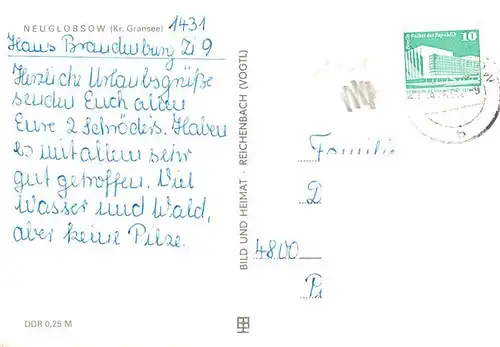 NEUGLOBSOW (Kr. Gransee) 1431
Haus Brandenburg Zi 9
Herzliche Urlaubsgrüße
senden Euch allen
Eure 2 Schröders. Haben
es mit allem sehr
gut getroffen. Viel
Wasser und Wald,
aber keine Pilze.
DDR 0,25 M
BILD UND HEIMAT · REICHENBACH (VOGTL)
10
Familie
D
4800